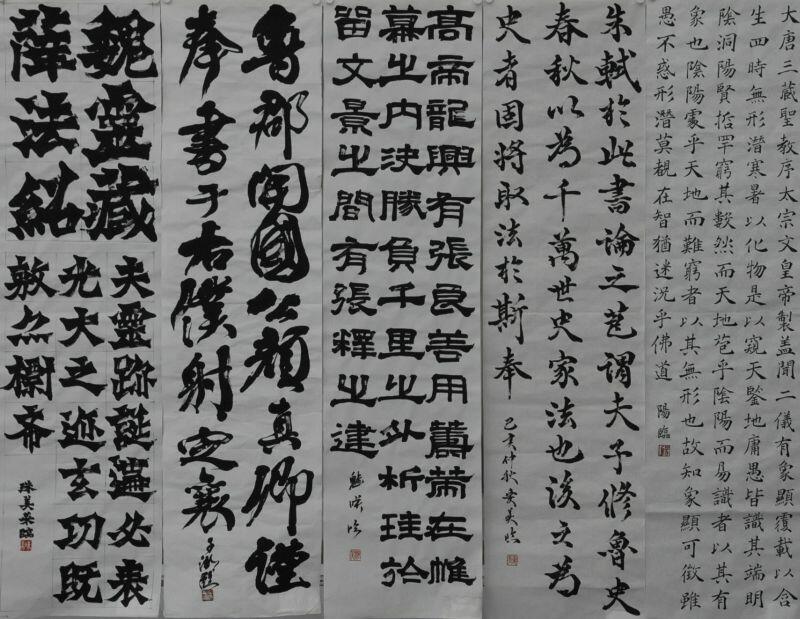 大唐三藏聖教序太宗文皇帝製盖聞二儀有象顯覆載以含
生四時無形潛寒暑以化物是以窺天鑒地庸愚皆識其端明
陰洞陽賢哲罕窮其數然而天地苞乎陰陽而易識者以其有
象也陰陽處乎天地而難窮者以其無形也故知象顯可徵雖
愚不惑形潛莫覩在智猶迷況乎佛道 陽臨
朱軾於此書論之謂夫子修魯史
春秋以為千萬世史家法也後之為
史者固將取法於斯奉
己亥仲秋
高帝龍興有張良善用籌策在帷
幕之内決勝負千里之外析珪於
留文景之間有張釋之建
魯郡開國公顏真卿謹
奉書于右僕射定襄
魏靈藏
薛法紹
夫靈跡誕遘必表
光大之迹玄功既
敷亦標希